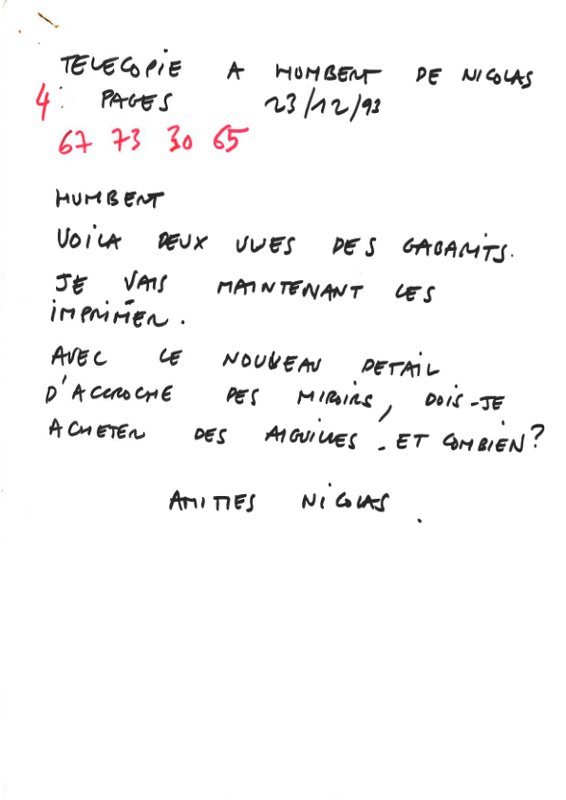 TELECOPIE A HUMBERT DE NICOLAS
4 : PAGES 23/12/93
67 73 30 65
HUMBERT
VOILA DEUX VUES DES GABARITS.
JE VAIS MAINTENANT LES
IMPRIMER.
AVEC LE NOUVEAU DETAIL
D'ACCROCHE DES MIROIRS, DOIS-JE
ACHETER DES AIGUILLES - ET COMBIEN?
AMITIES NICOLAS.